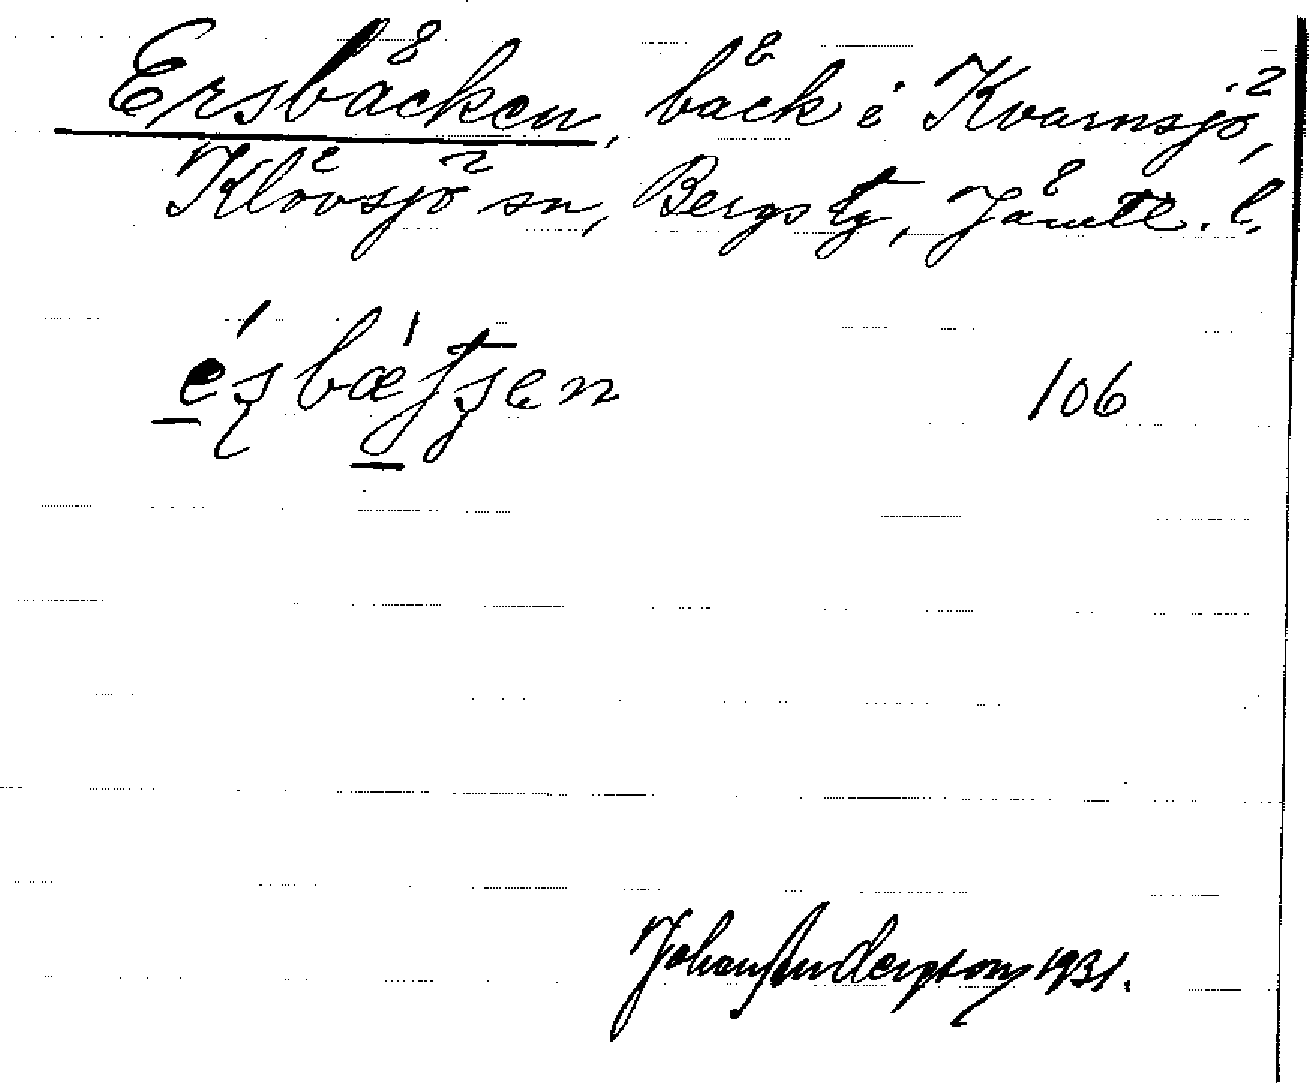 Ersbäcken, bäck i Kvarnsjö,
Klövsjö sn, Bergs tg, Jämtl. l.
106
Johan Anderson 1931.